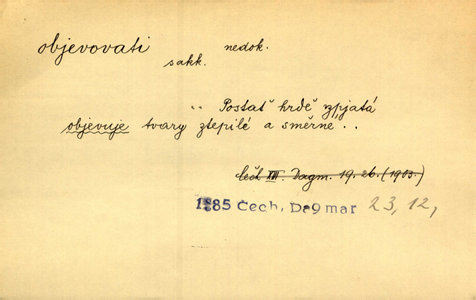 objevovati nedok.
sakk.
.. Postať hrdě vzpjatá
objevuje tvary ztepilé a směrné ..
Čech XIII. Dagm. 19. ab. (1903.)
1885 Čech, Dagmar 23, 12,